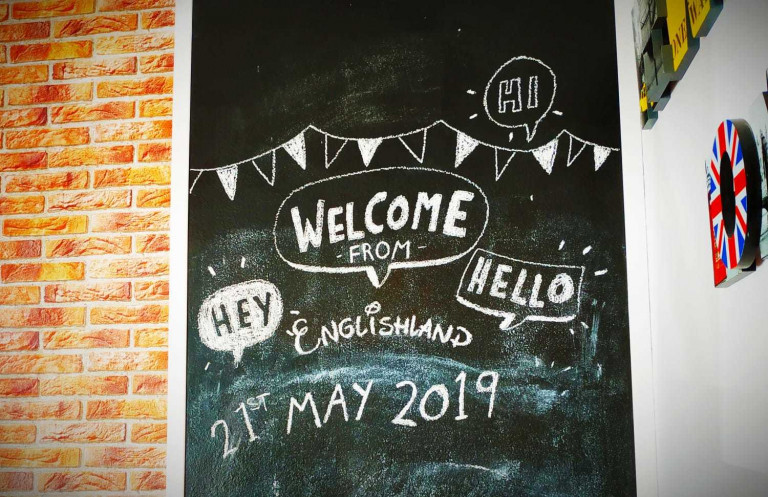 HI
WELCOME
- FROM -
HELLO
HEY
ENGLISHLAND
21ST MAY 2019